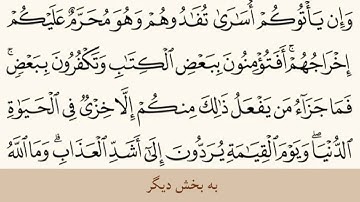 وَإِن يَأْتُوكُمْ أُسَٰرَىٰ تُفَٰدُوهُمْ وَهُوَ مُحَرَّمٌ عَلَيْكُمْ
إِخْرَاجُهُمْ ۚ أَفَتُؤْمِنُونَ بِبَعْضِ ٱلْكِتَٰبِ وَتَكْفُرُونَ بِبَعْضٍ ۚ
فَمَا جَزَآءُ مَن يَفْعَلُ ذَٰلِكَ مِنكُمْ إِلَّا خِزْىٌ فِى ٱلْحَيَوٰةِ
ٱلدُّنْيَا ۖ وَيَوْمَ ٱلْقِيَٰمَةِ يُرَدُّونَ إِلَىٰٓ أَشَدِّ ٱلْعَذَابِ ۗ وَمَا ٱللَّهُ
به بخش دیگر